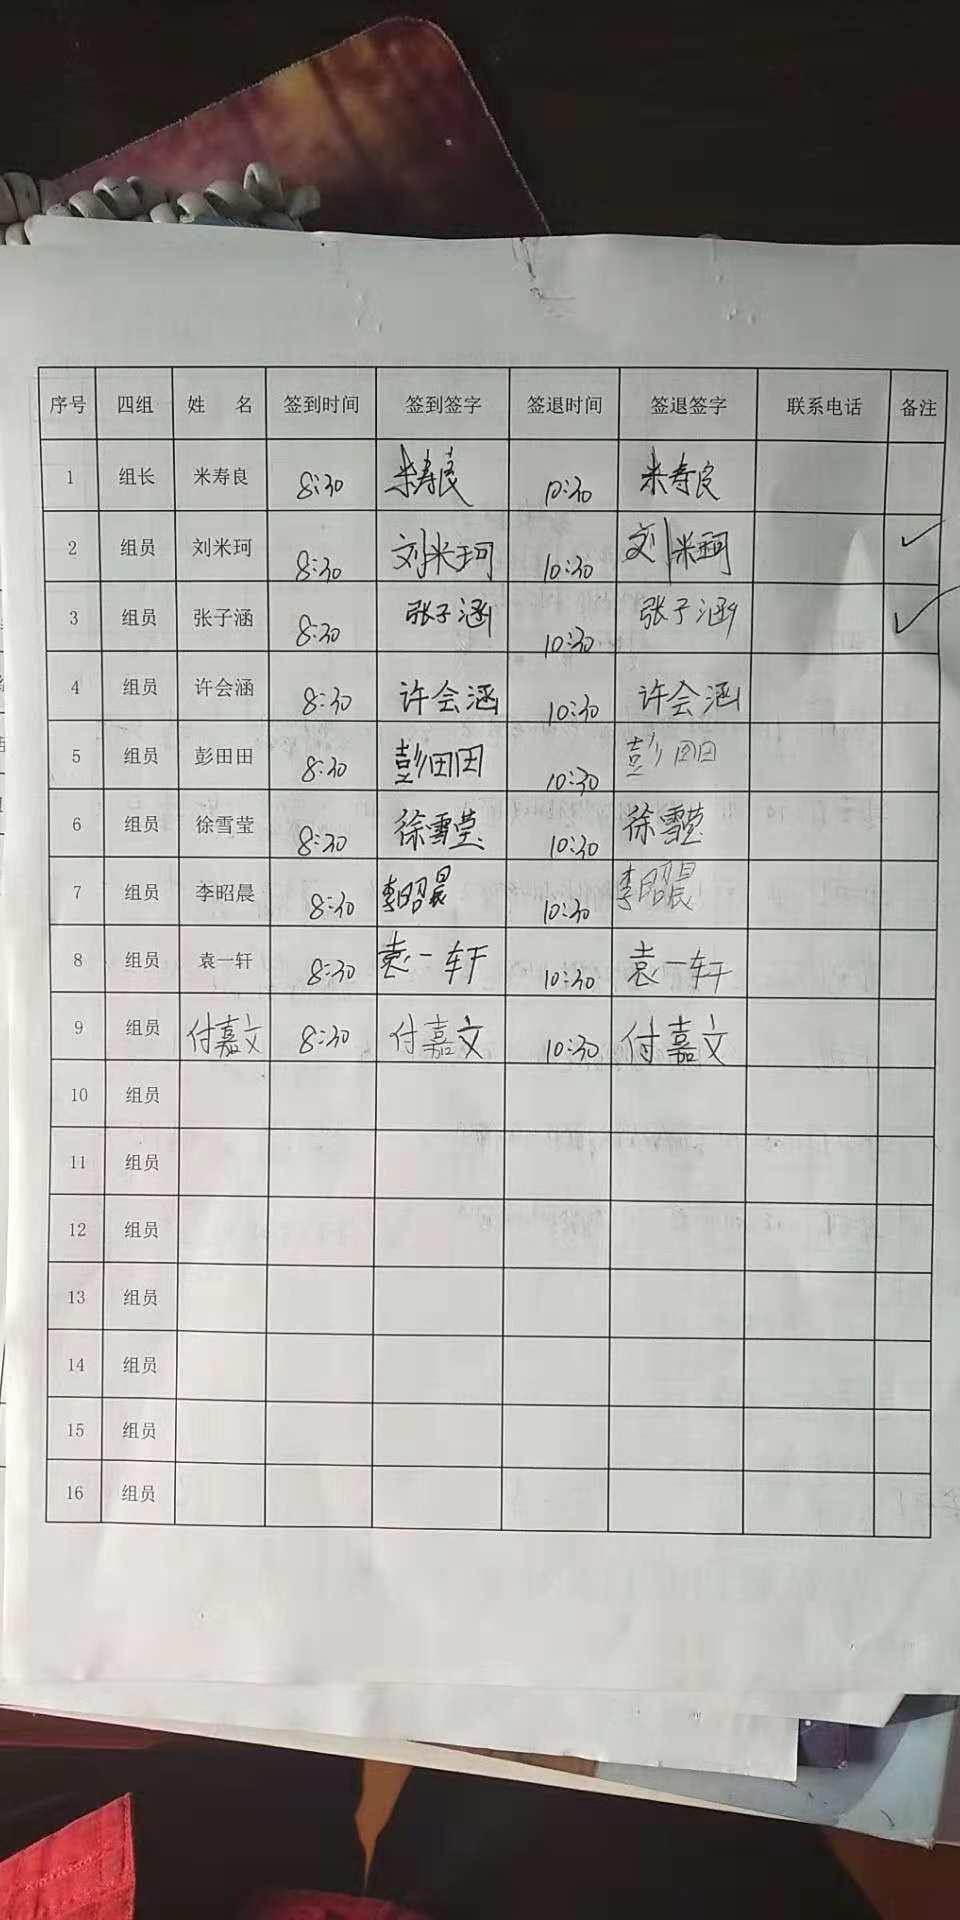 序号 四组 姓 名 签到时间 签到签字 签退时间 签退签字 联系电话 备注
1 组长 米寿良 8:30 米寿良 10:30 米寿良
2 组员 刘米珂 8:30 刘米珂 10:30 刘米珂 ✓
3 组员 张子涵 8:30 张子涵 10:30 张子涵 ✓
4 组员 许会涵 8:30 许会涵 10:30 许会涵
5 组员 彭田田 8:30 彭田田 10:30 彭田田
6 组员 徐雪莹 8:30 徐雪莹 10:30 徐雪莹
7 组员 李昭晨 8:30 李昭晨 10:30 李昭晨
8 组员 袁一轩 8:30 袁一轩 10:30 袁一轩
9 组员 付嘉文 8:30 付嘉文 10:30 付嘉文
10 组员
11 组员
12 组员
13 组员
14 组员
15 组员
16 组员